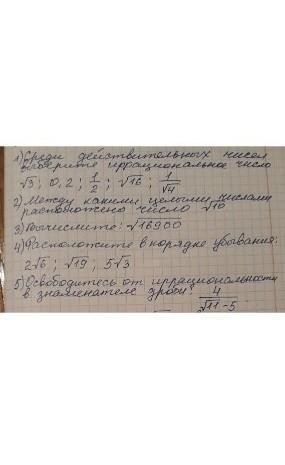 1) Среди действительных чисел
выберите иррациональное число
√3; 0,2; 1/2; √16; 1/√4
2) Между какими целыми числами
расположено число √10
3) Вычислите: √16900
4) Расположите в порядке убывания:
2√6; √19; 5√3
5) Освободитесь от иррациональности
в знаменателе дроби: 4/(√11-5)